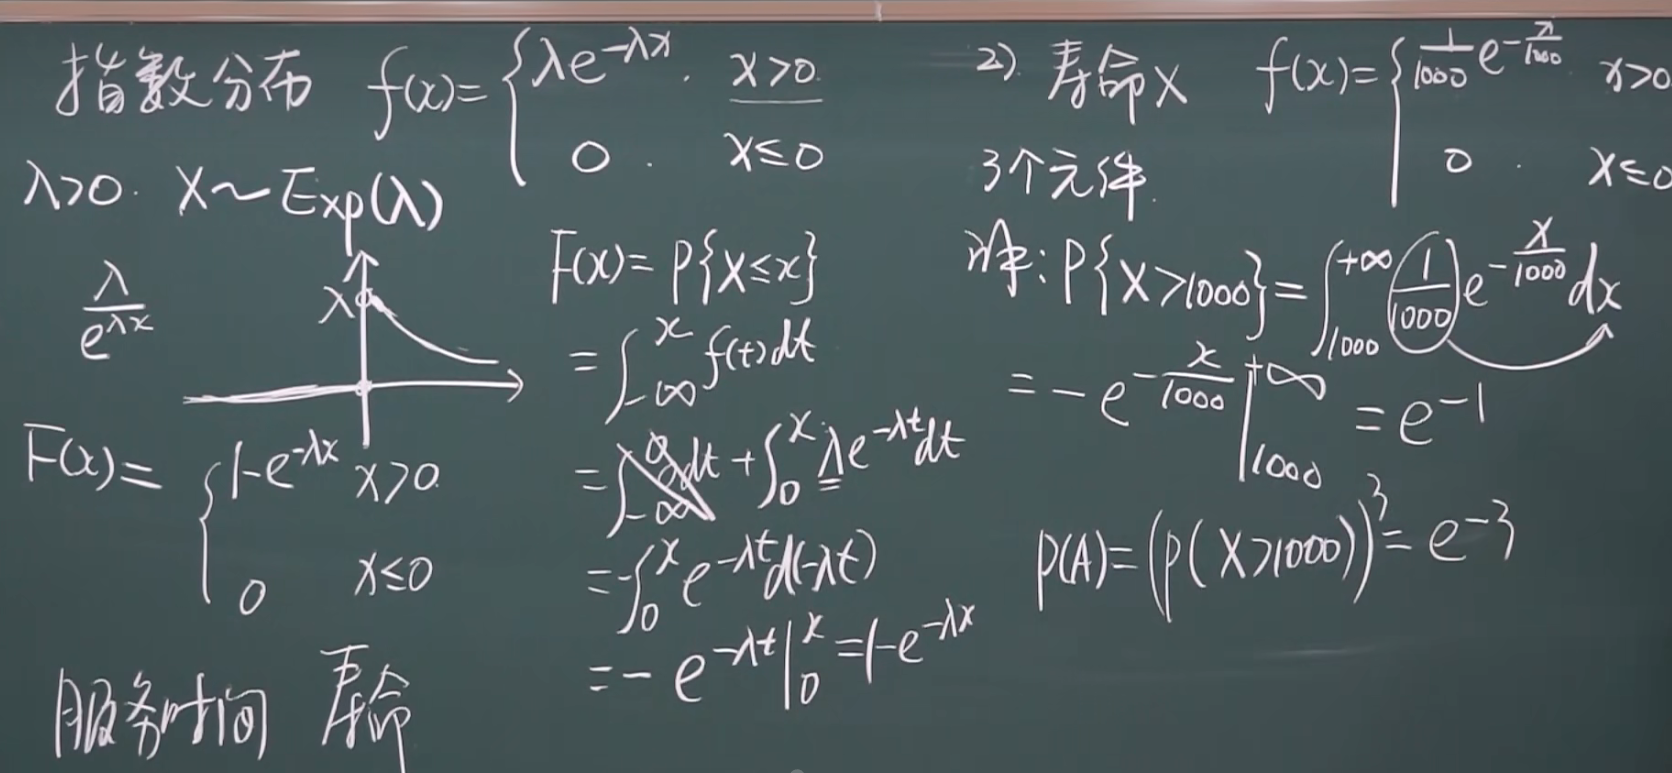 指数分布 f(x)={λe^{-λx}. x>0.
0. x≤0
λ>0. X~Exp(λ)
λ/e^{λx}
λ
F(x)={1-e^{-λx} x>0.
0 x≤0
服务时间 寿命
F(x)=P{X≤x}
=∫_{-∞}^{x}f(t)dt
=∫_{-∞}^{0}0dt+∫_{0}^{x}λe^{-λt}dt
=-∫_{0}^{x}e^{-λt}d(-λt)
=-e^{-λt}|_{0}^{x}=1-e^{-λx}
2). 寿命X f(x)={1/1000 e^{-x/1000} x>0
0. x≤0
3个元件.
P{X>1000}=∫_{1000}^{+∞}1/1000 e^{-x/1000}dx
=-e^{-x/1000}|_{1000}^{+∞}=e^{-1}
P(A)=(P(X>1000))^3=e^{-3}